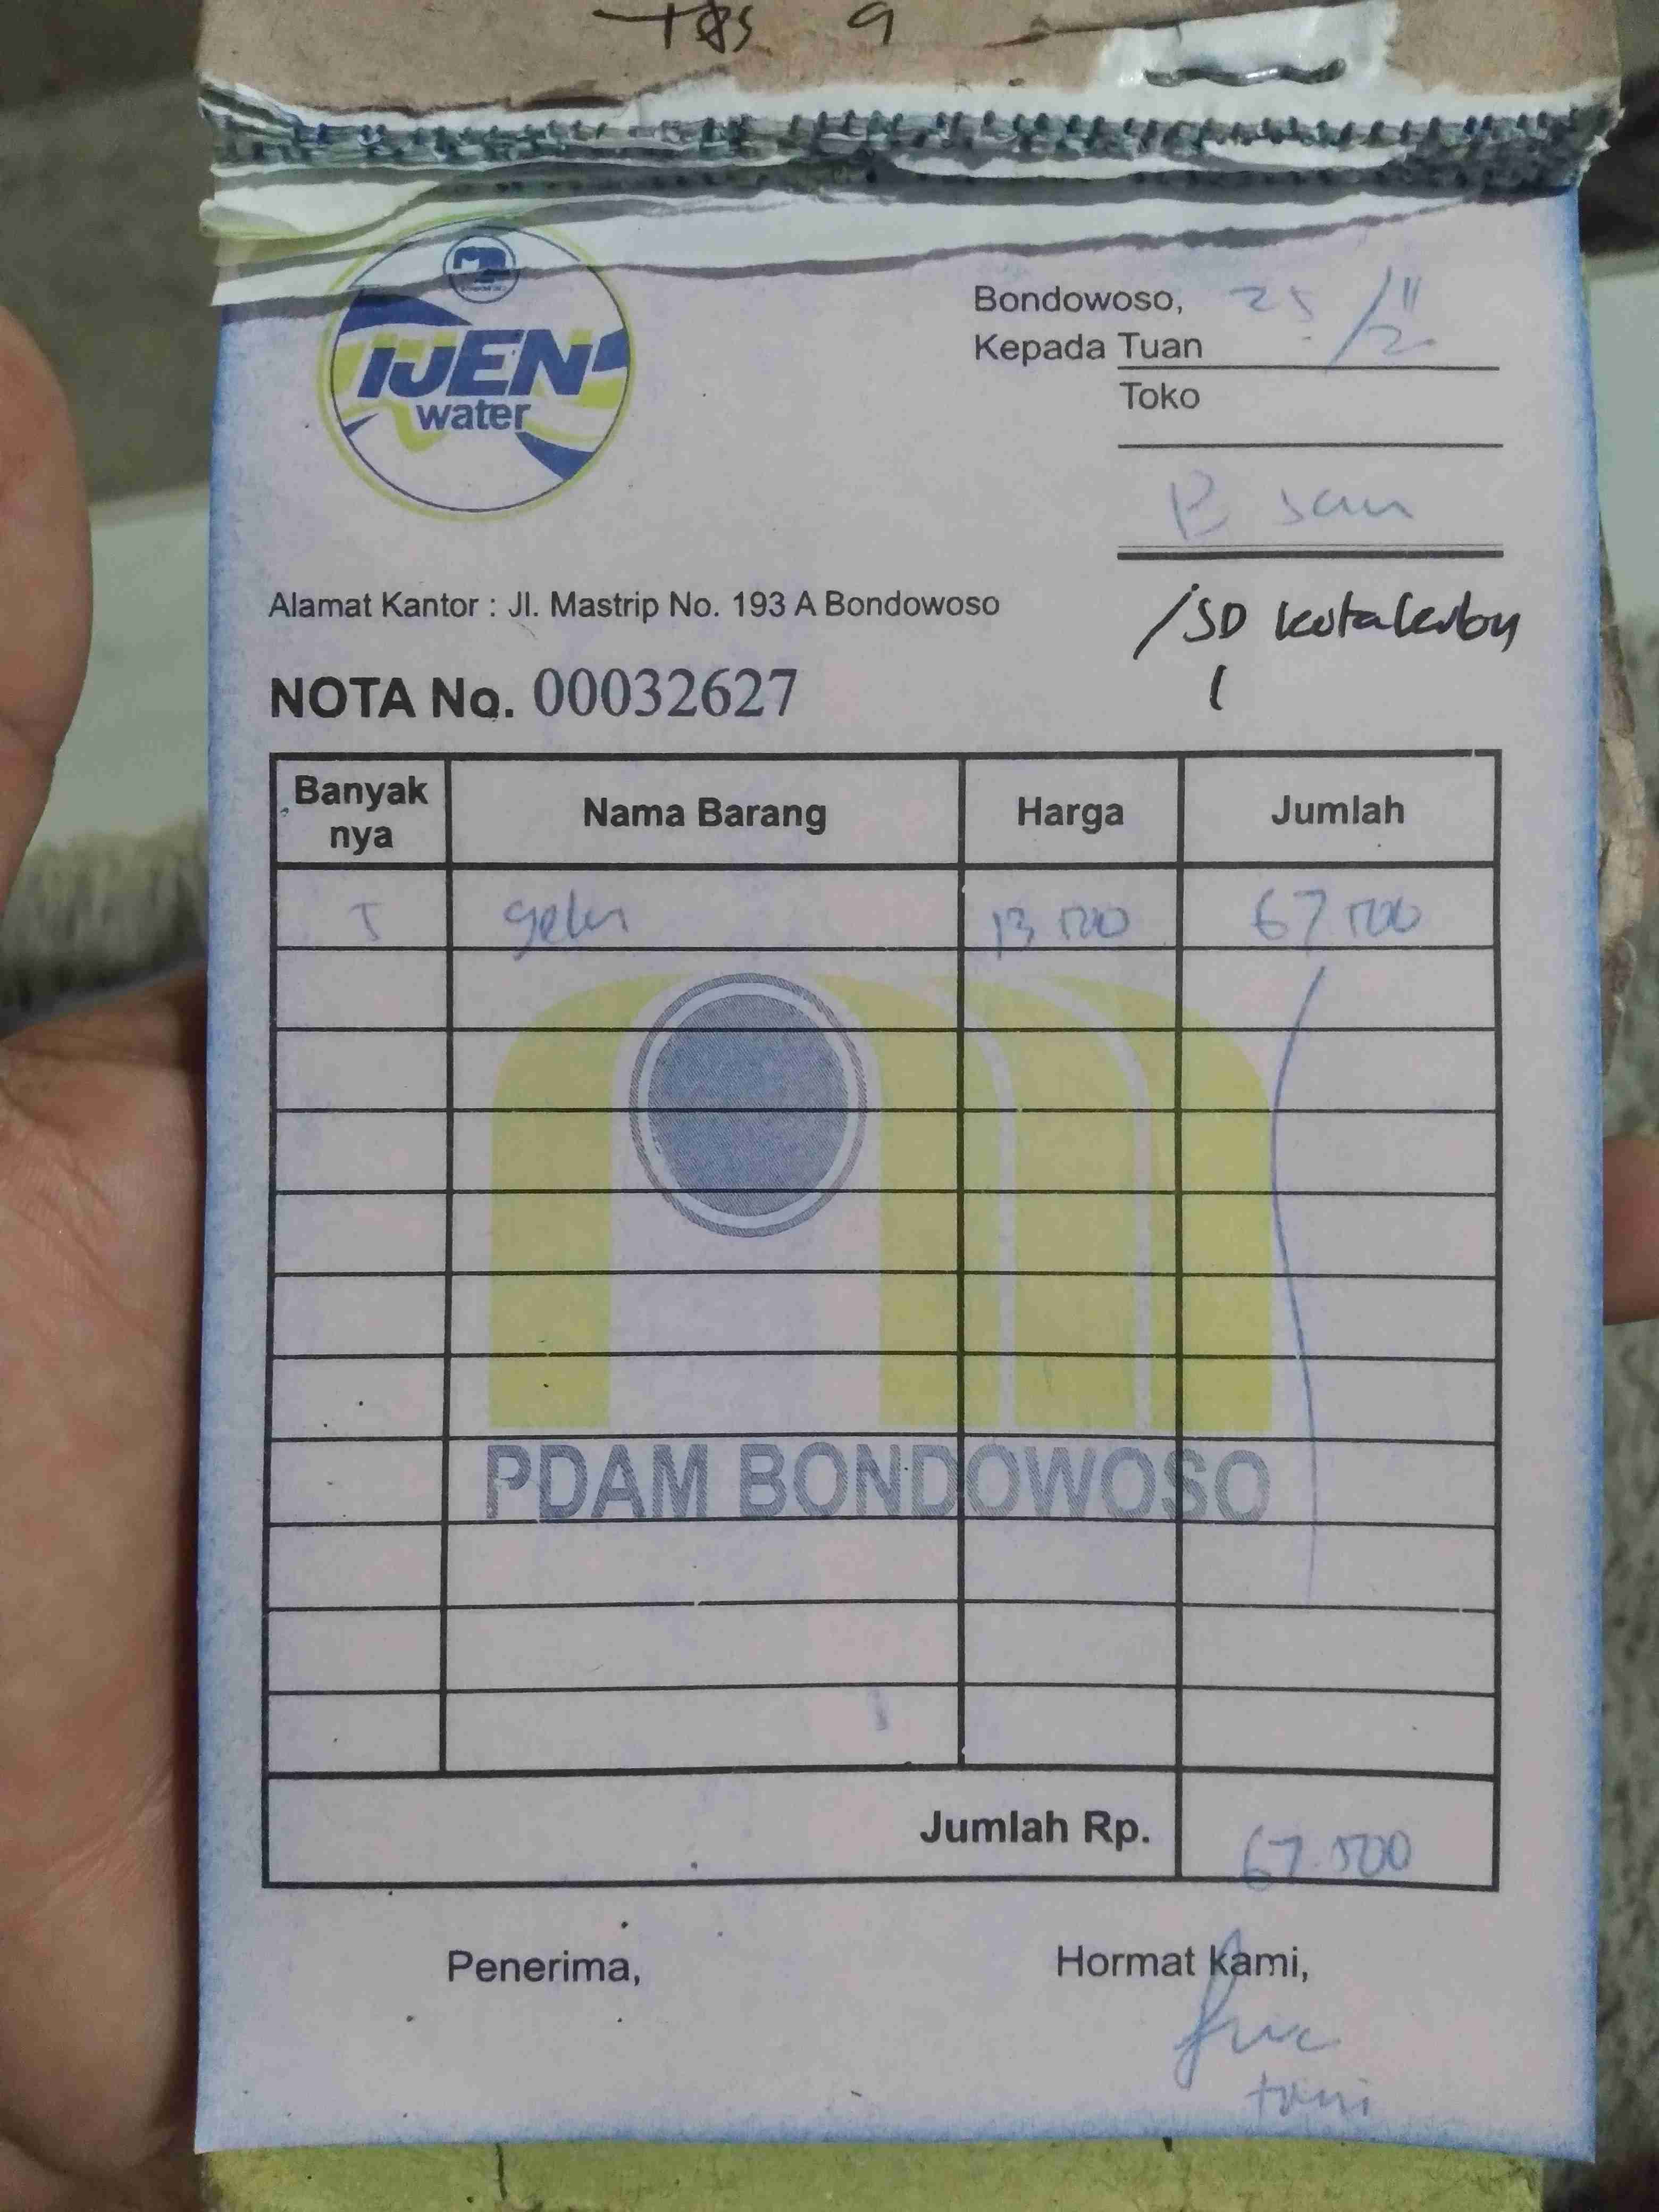 IJEN
water
Bondowoso, 25/11
Kepada Tuan
Toko
P San
Alamat Kantor : Jl. Mastrip No. 193 A Bondowoso
/SD kotakulon
1
NOTA No. 00032627
Banyak nya Nama Barang Harga Jumlah
5 gelas 13 500 67 500
PDAM BONDOWOSO
Jumlah Rp. 67.500
Penerima, Hormat kami,